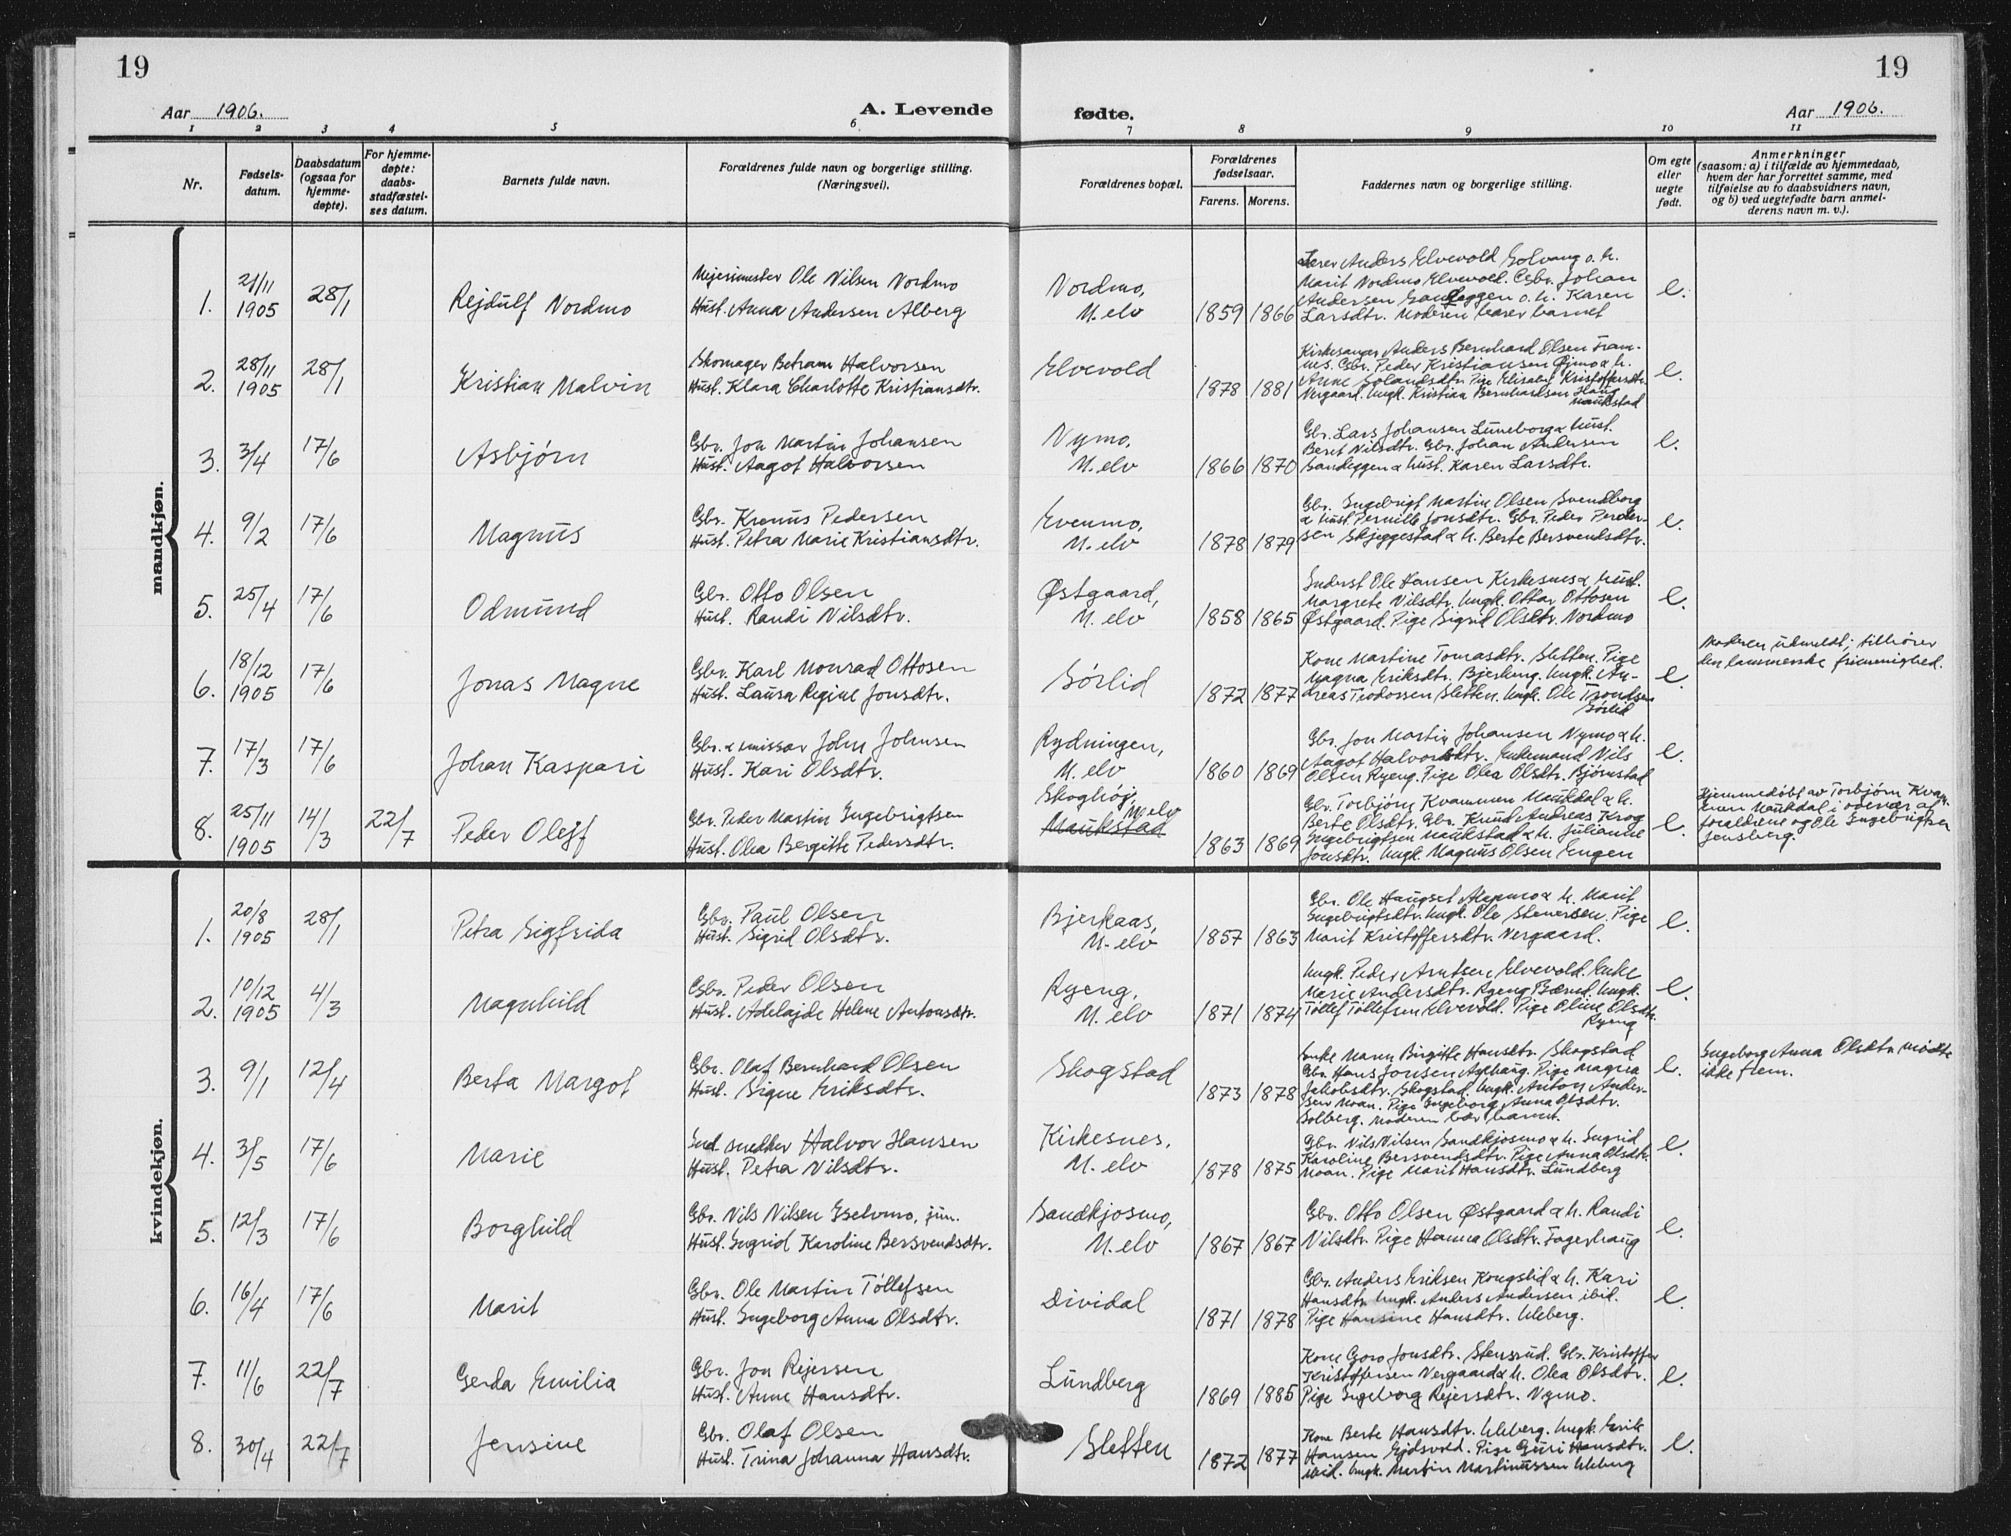 19
19
Aar 1906.
A. Levende
fødte.
Aar 1906.
1 2 3 4 5 6 7 8 9 10 11
Nr.
Fødsels-
datum.
Daabsdatum
(ogsaa for
hjemme-
døpte).
For hjemme-
døpte:
daabs-
stadfæstel-
ses datum.
Barnets fulde navn.
Forældrenes fulde navn og borgerlige stilling.
(Næringsvei).
Forældrenes bopæl.
Forældrenes
fødselsaar.
Farens. Morens.
Faddernes navn og borgerlige stilling.
Om egte
eller
uegte
født.
Anmerkninger
(saasom: a) i tilfælde av hjemmedaab,
hvem der har forrettet samme, med
tilføielse av to daabsvidners navn,
og b) ved uegtefødte barn anmel-
derens navn m. v.).
mandkjøn.
1. 21/11 1905 28/1 Rejdulf Nordmo
Mejerimester Ole Nilsen Nordmo
Hust. Anna Andersen Alberg
Nordmo,
M. elv
1859 1866
Lærer Anders Elvevold Solvang o. h.
Marit Nordmo Elvevold. Gbr. Johan
Andersen Sandeggen o. h. Karen
Larsdtr. Moderen bærer barnet
e.
2. 28/11 1905 28/1 Kristian Malvin
Skomager Betram Halvorsen
Hust. Klara Charlotte Kristiansdtr.
Elvevold
1878 1881
Kirkesanger Anders Bernhard Olsen Fram-
nes. Gbr. Peder Kristiansen Øimo & h.
Anne Solandsdtr. Pige Elisabet Kristoffersdtr.
Vergaard. Ungk. Kristian Bernhardsen Haug
Maukstad
e.
3. 3/4 17/6 Asbjørn
Gbr. Jon Martin Johansen
Hust. Aagot Halvorsen
Nymo,
M. elv
1866 1870
Gbr. Lars Johansen Luneborg & hust.
Beret Nilsdtr. Gbr. Johan Andersen
Sandeggen & hust. Karen Larsdtr.
e.
4. 9/2 17/6 Magnus
Gbr. Kronus Pedersen
Hust. Petra Marie Kristiansdtr.
Evenmo,
M. elv
1878 1879
Gbr. Ingebrigt Martin Olsen Svendborg
& hust. Pernille Jonsdtr. Gbr. Peder Peder-
sen Skjeggestad & h. Berte Bersvendsdtr.
e.
5. 25/4 17/6 Odmund
Gbr. Otto Olsen
Hust. Randi Nilsdtr.
Østgaard,
M. elv
1858 1865
Inderst Ole Hansen Kirkesnes & hust.
Margrete Nilsdtr. Ungk. Ottar Ottosen
Østgaard. Pige Sigrid Olsdtr. Nordmo
e.
6. 18/12 1905 17/6 Jonas Magne
Gbr. Karl Monrad Ottosen
Hust. Laura Regine Jonsdtr.
Sørlid
1872 1877
Kone Martine Tomasdtr. Sletten. Pige
Magna Eriksdtr. Bjerkeng. Ungk. An-
dreas Teodorsen Sletten. Ungk. Ole Trondsen
Sørlid
e.
Moderen udmeldt; tilhører
den lammerske frimenighed.
7. 17/3 17/6 Johan Kaspari
Gbr. & emissær John Johnsen
Hust. Kari Olsdtr.
Rydningen,
M. elv
1860 1869
Gbr. Jon Martin Johansen Nymo & h.
Aagot Halvorsdtr. Enkemand Nils
Olsen Ryeng. Pige Olea Olsdtr. Bjørnstad
e.
8. 25/11 1905 14/3 22/7 Peder Olejf
Gbr. Peder Martin Ingebrigtsen
Hust. Olea Bergitte Pedersdtr.
Skoghøj,
M. elv
Maukstad
1863 1869
Gbr. Torbjørn Kvammen Maukdal & h.
Berte Olsdtr. Gbr. Knud Andreas Krog
Ingebrigtsen Maukstad & h. Julianne
Jonsdtr. Ungk. Magnus Olsen Engen
e.
Hjemmedøbt av Torbjørn Kvam-
men Maukdal i overvær af
forældrene og Ole Ingebrigtsen
Jensberg.
kvindekjøn.
1. 20/8 1905 28/1 Petra Sigfrida
Gbr. Paul Olsen
Hust. Sigrid Olsdtr.
Bjerkaas,
M. elv
1857 1863
Gbr. Ole Haugset Alapmo & h. Marit
Ingebrigtsdtr. Ungk. Ole Stenersen. Pige
Marit Kristoffersdtr. Vergaard.
e.
2. 10/12 1905 4/3 Magnhild
Gbr. Peder Olsen
Hust. Adelajde Helene Antonsdtr.
Ryeng,
M. elv
1871 1874
Ungk. Peder Arntsen Elvevold. Enke
Marie Andersdtr. Ryeng Ungk.
Tøllef Tøllefsen Elvevold. Pige Oline Olsdtr.
Ryeng
e.
3. 9/1 12/4 Berta Margot
Gbr. Olaf Bernhard Olsen
Hust. Signe Eriksdtr.
Skogstad
1873 1878
Enke Maren Birgitte Hansdtr. Skogstad
Gbr. Hans Jonsen Asphaug. Pige Magna
Jakobsdtr. Skogstad. Ungk. Anton Ander-
sen Moan. Pige Ingeborg Anna Olsdtr.
Solberg. Moderen bær barnet.
e.
Ingeborg Anna Olsdtr. mødte
ikke frem.
4. 3/5 17/6 Marie
Ind. snedker Halvor Hansen
Hust. Petra Nilsdtr.
Kirkesnes,
M. elv
1878 1875
Gbr. Nils Nilsen Sandkjosmo & h. Ingrid
Karoline Bersvendsdtr. Pige Anna Olsdtr.
Moan. Pige Marit Hansdtr. Lundberg
e.
5. 12/3 17/6 Borghild
Gbr. Nils Nilsen Iselvmo, jun.
Hust. Ingrid Karoline Bersvendsdtr.
Sandkjosmo,
M. elv
1867 1867
Gbr. Otto Olsen Østgaard & h. Randi
Nilsdtr. Pige Hanna Olsdtr. Fagerhaug
e.
6. 16/4 17/6 Marit
Gbr. Ole Martin Tøllefsen
Hust. Ingeborg Anna Olsdtr.
Dividal
1871 1878
Gbr. Anders Eriksen Kongslid & h. Kari
Hansdtr. Ungk. Anders Andersen ibid.
Pige Hansine Hansdtr. Uleberg.
e.
7. 11/6 22/7 Gerda Emilia
Gbr. Jon Rejersen
Hust. Anne Hansdtr.
Lundberg
1869 1885
Kone Goro Jonsdtr. Stensrud. Gbr. Kristoffer
Kristoffersen Vergaard & h. Olea Olsdtr.
Pige Ingeborg Rejersdtr. Nymo.
e.
8. 30/4 22/7 Jensine
Gbr. Olaf Olsen
Hust. Trina Johanna Hansdtr.
Sletten
1872 1877
Kone Berte Hansdtr. Uleberg. Ungk. Erik
Hansen Ejdsvold. Pige Guri Hansdtr.
ibid. Ungk. Martin Martinussen Uleberg
e.